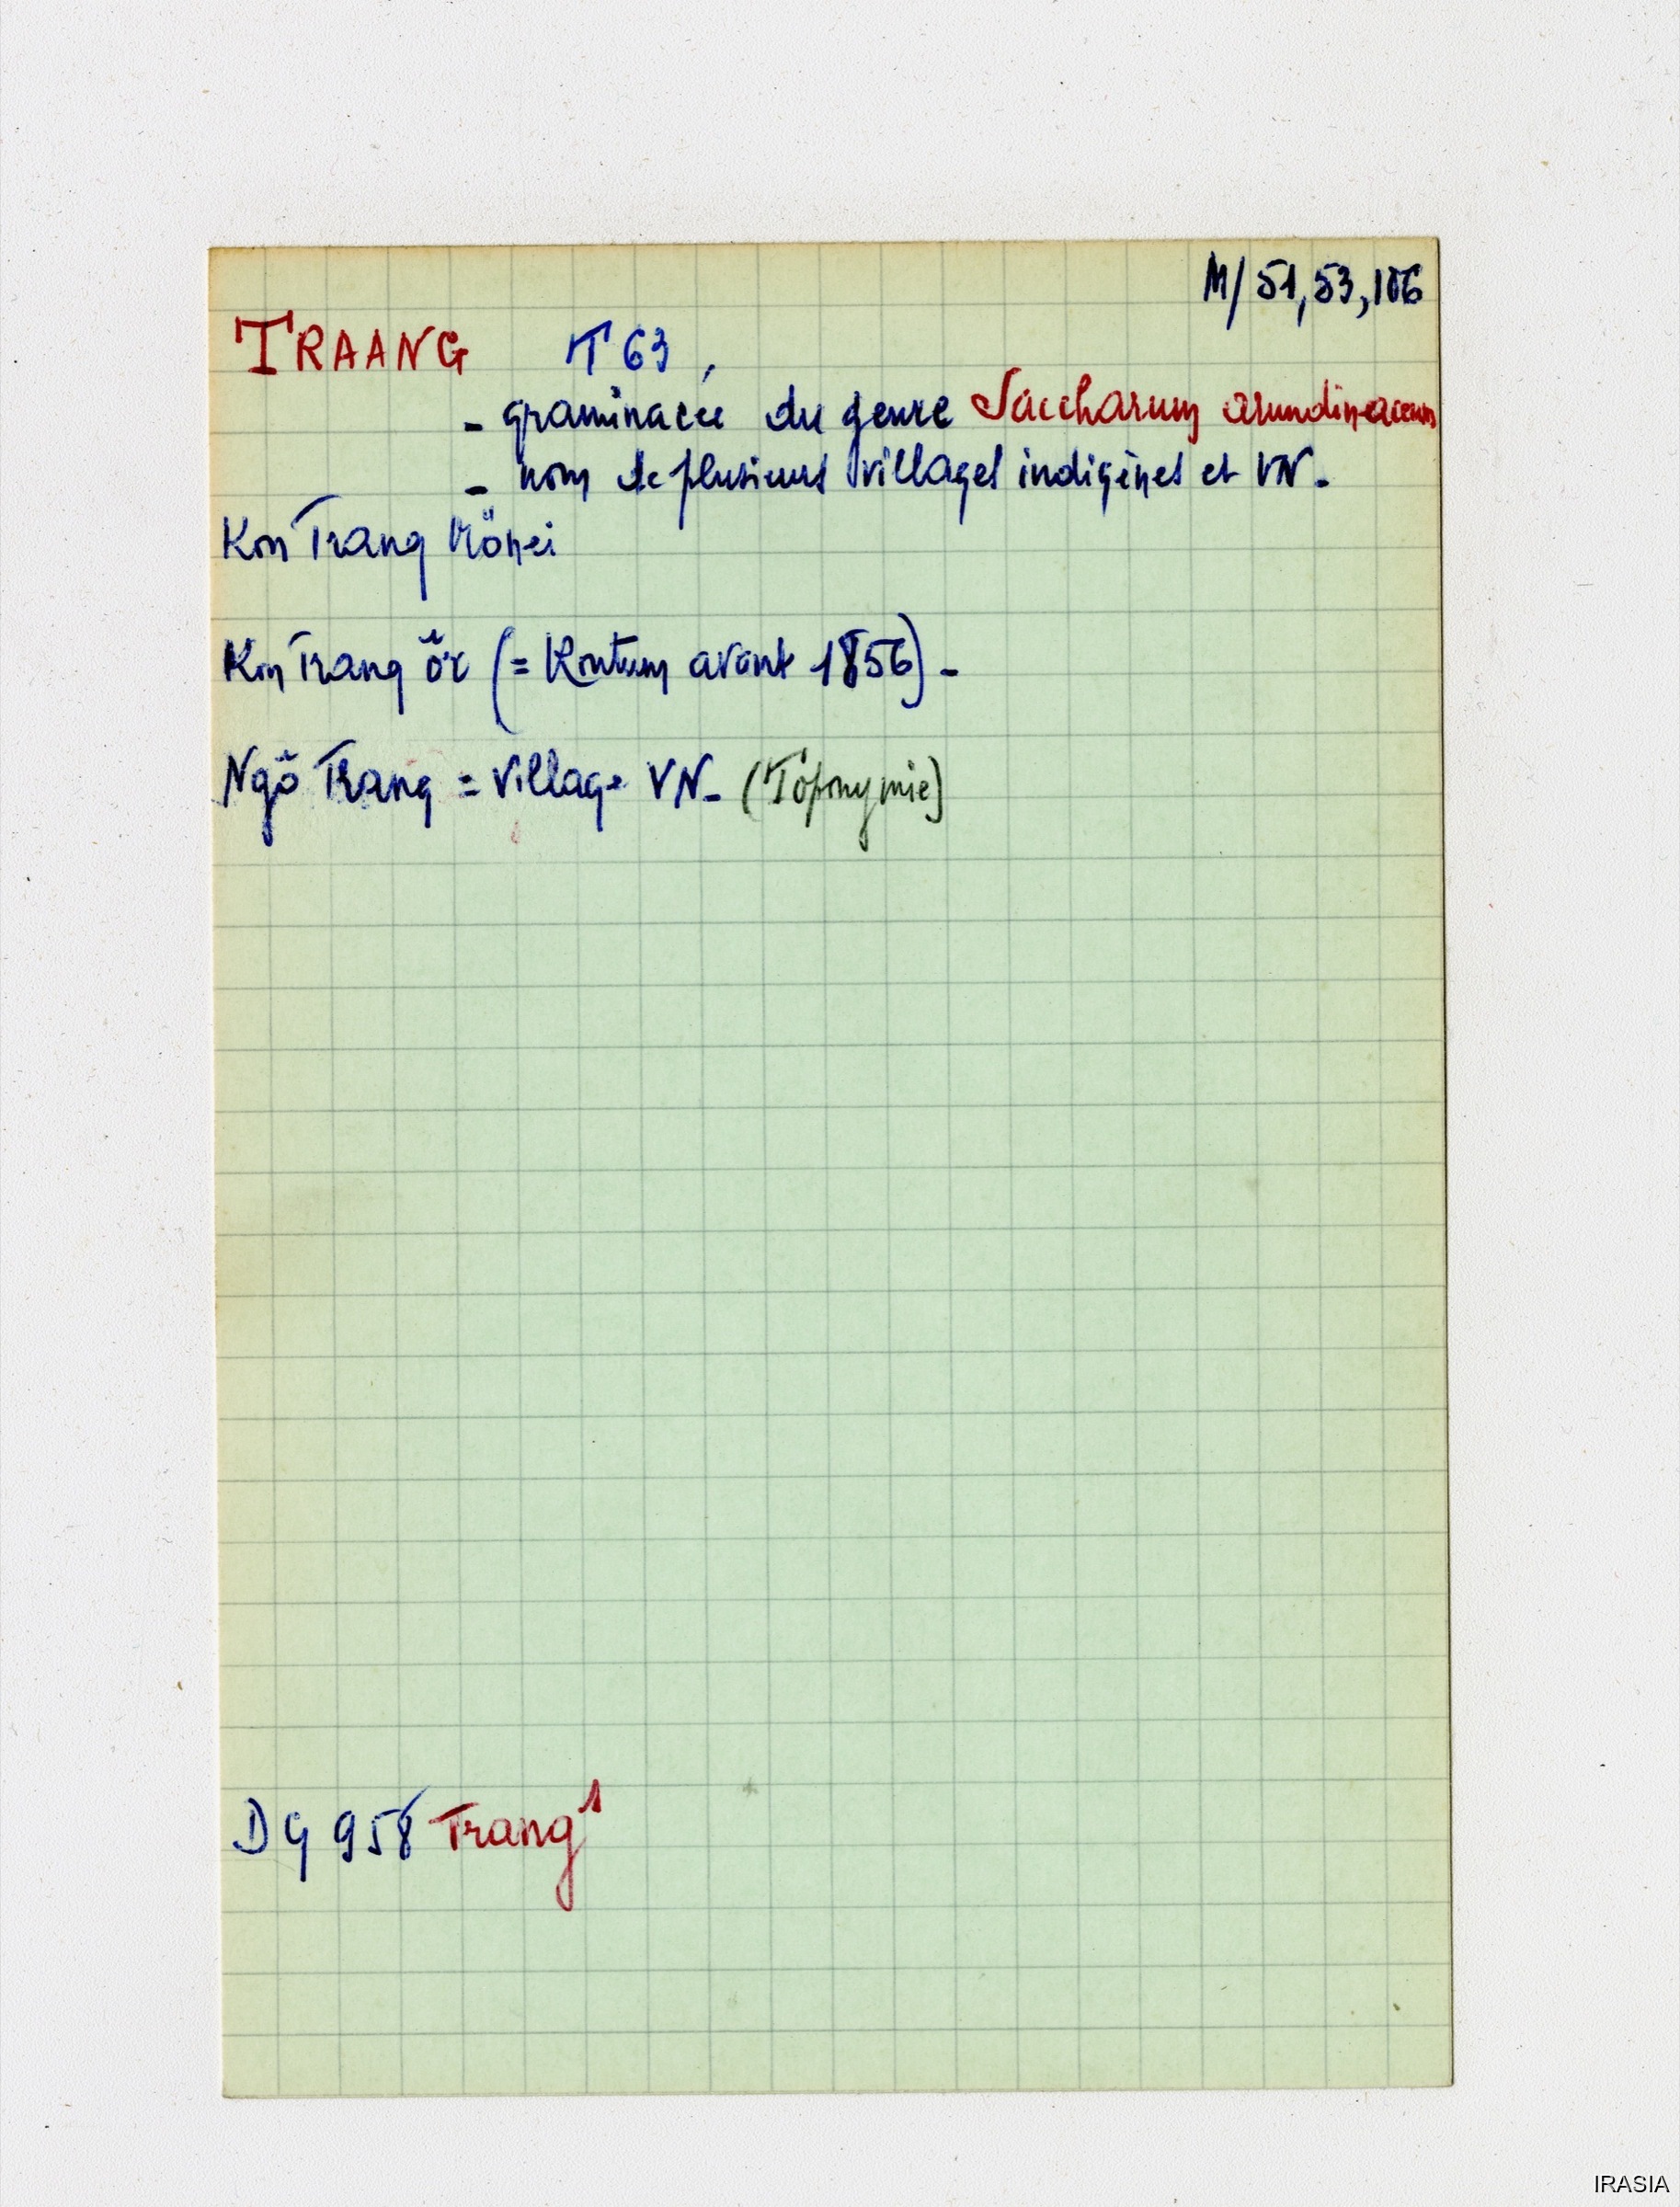 M/ 51, 53, 106
TRAANG T 63,
- graminacée du genre Saccharum arundinaceum
- nom de plusieurs villages indigènes et VN.
Kon Trang Mönei
Kon Trang ör (= Kontum avant 1856) -
Ngô Trang = village VN - (Toponymie)
DG 958 Trang¹
IRASIA